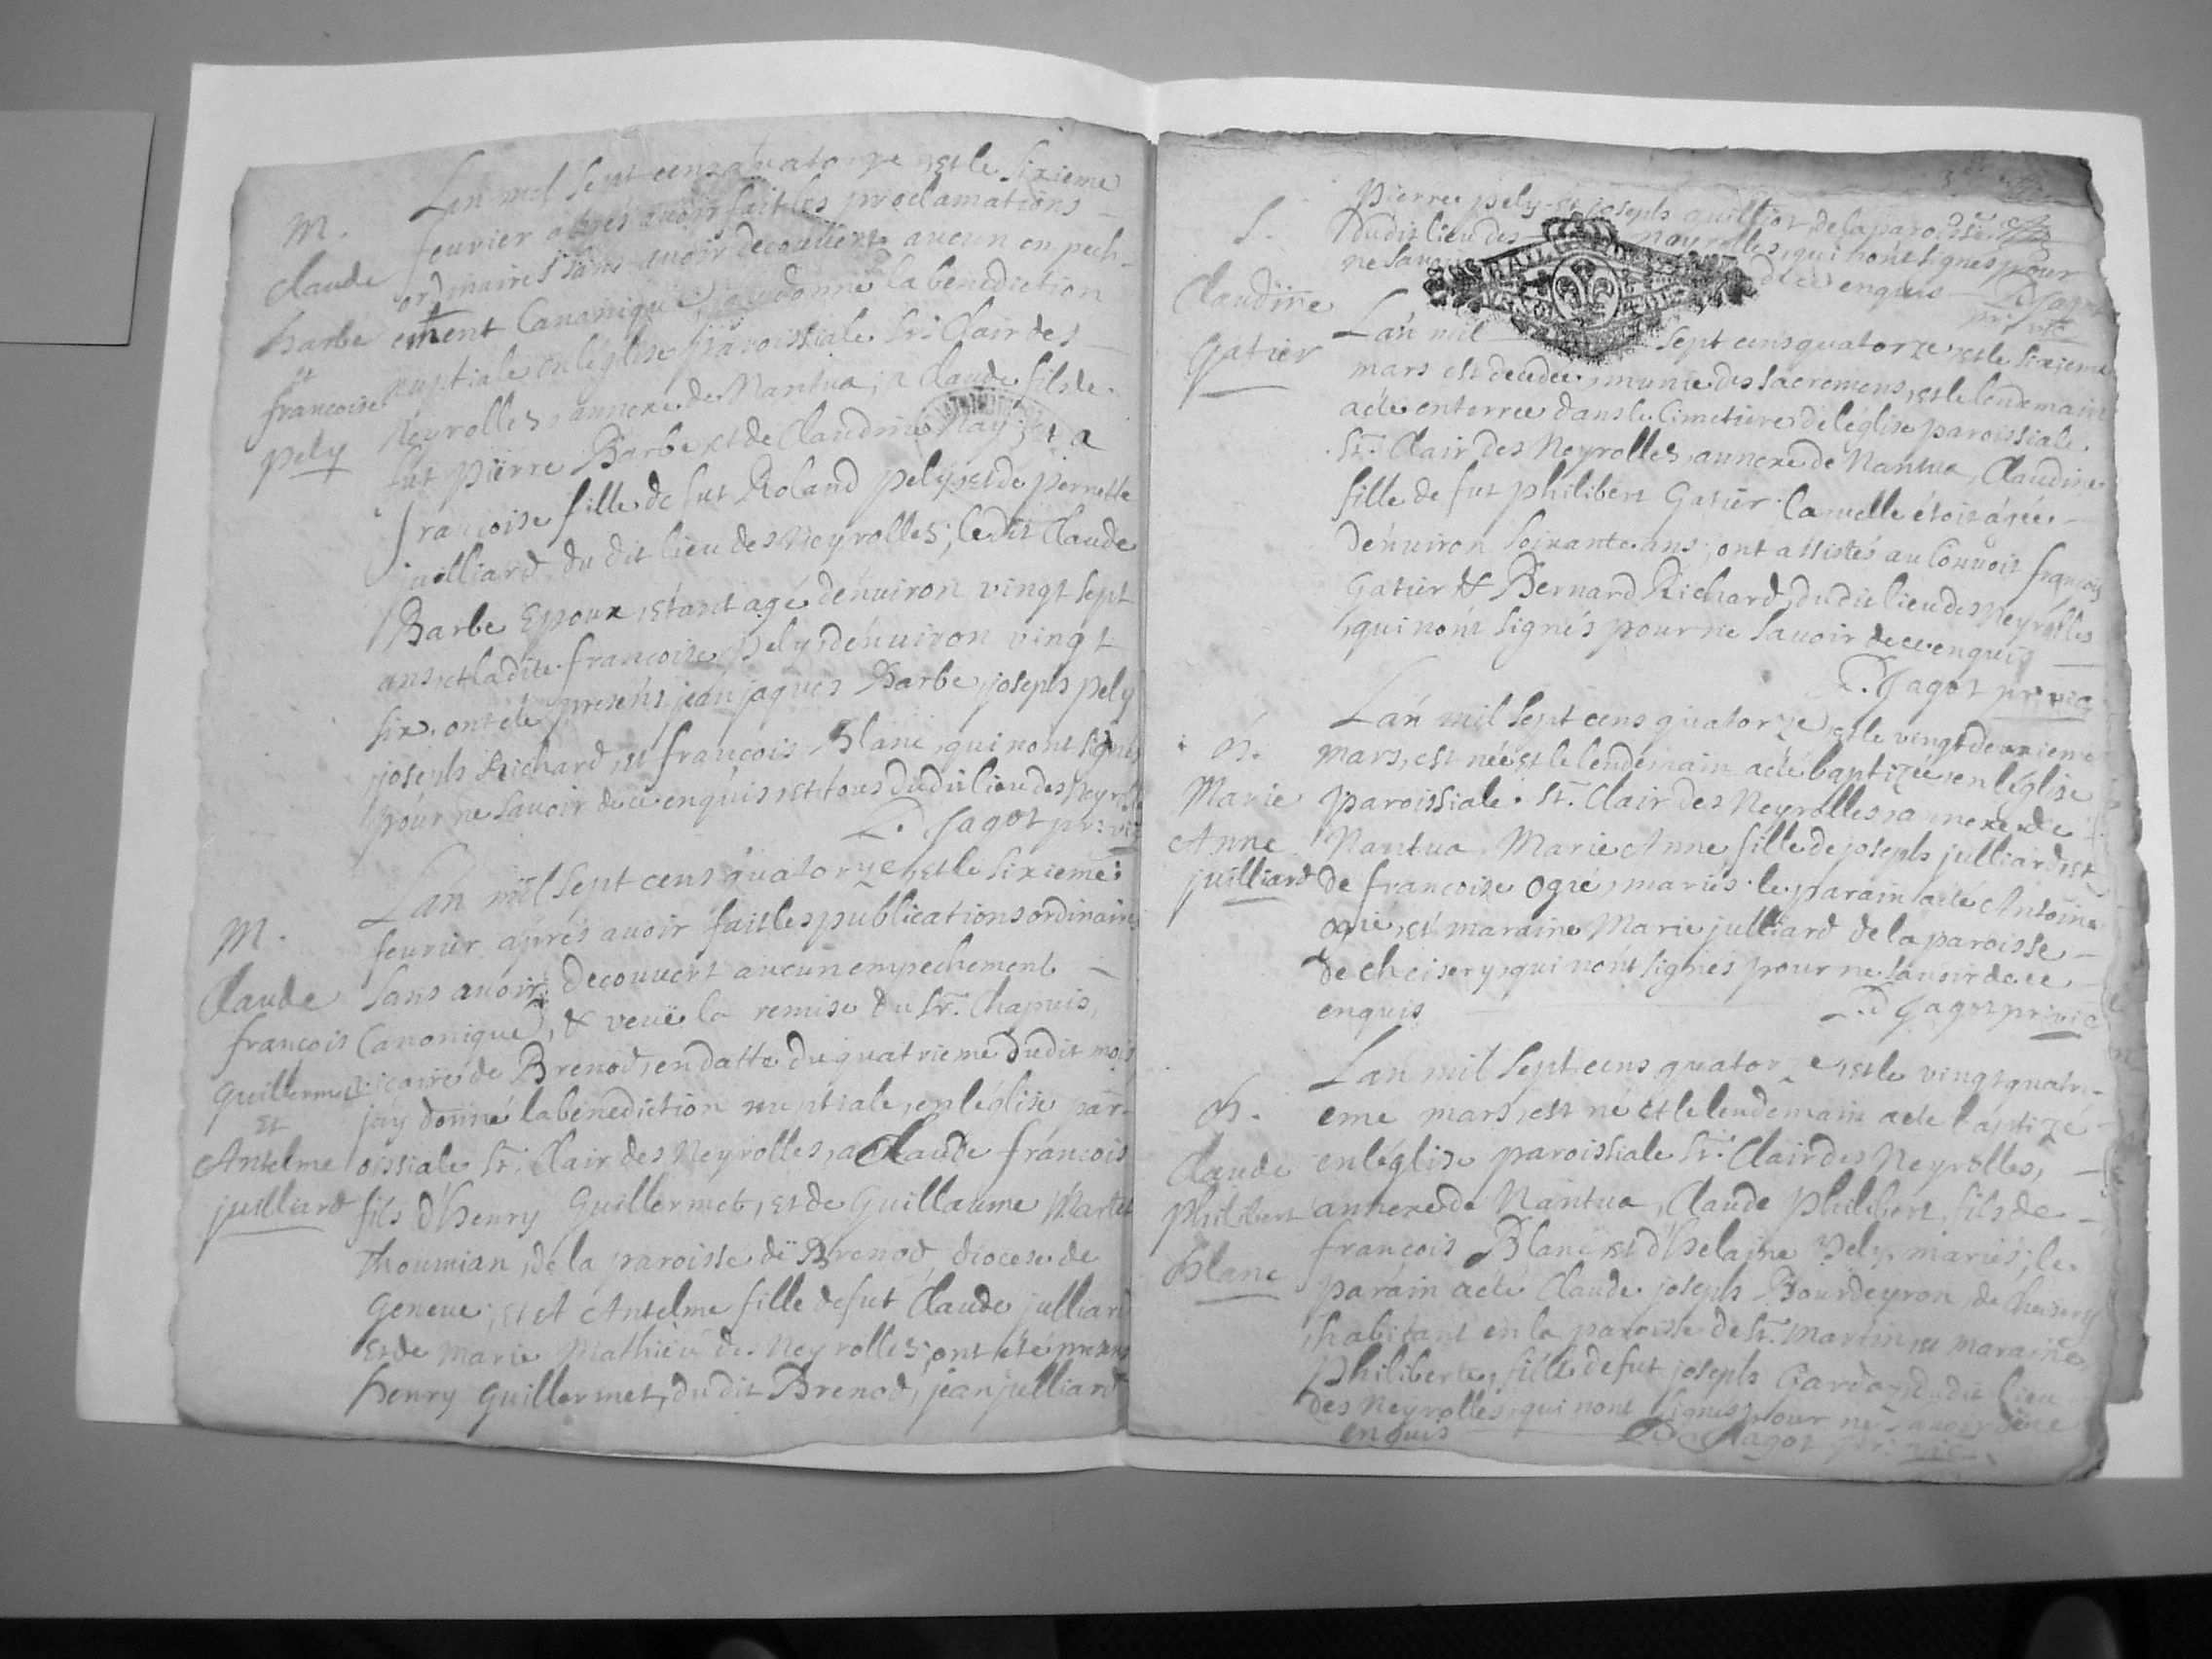 M.
Claude
barbe
et
francoise
pely
Lan mil sept cens quatorze et le sixieme
feurier apres auoir fait les proclamations
ordinaires sans auoir decouuert aucun empech-
ement Canonique, jay donné la benediction
nuptiale en léglise paroissiale St. Clair des
Neyrolles, annexe de Nantua, a Claude fils de
fut pierre Barbe et de Claudine Nay; et a
francoise fille de fut Roland pely, et de pernette
juilliard du dit lieu des Neyrolles; ledit Claude
Barbe Epoux, etant agé dénuiron vingt sept
ans, et ladite francoise pely dénuiron vingt
six. ont été presens jean jaques Barbe, joseph pely
joseph Richard, et francois Blanc, qui nont signés
pour ne sauoir de ce enquis, et tous dudit lieu des Neyrolles
D. Jagot pr. vic
M.
Claude
francois
Guillermet
et
Antelme
juilliard
Lan mil sept cens quatorze, et le sixieme
feurier apres auoir fait les publications ordinaires
sans auoir decouuert aucun empechement
Canonique, & veuë la remise du Sr. Chapuis,
vicaire de Brenod, en datte du quatrieme dudit mois
jay donné la benediction nuptiale, en léglise par-
oissiale St. Clair des Neyrolles, a Claude francois
fils d'henry Guillermet, et de Guillaume Martel
Thoumian, de la paroisse de Brenod, diocese de
Geneue; et A Antelme fille de fut Claude julliard
et de Marie Mathieu des Neyrolles; ont été presens
henry Guillermet, du dit Brenod, jean julliard
Pierre pely et joseph guilliot de la paroisse
dudit lieu des Neyrolles, qui nont signés pour
ne sauoir de ce enquis D. Jagot
pr. vic
S.
Claudine
Gatier
Lan mil sept cens quatorze et le sixieme
mars est decedée munie des sacremens, et le lendemain
a été enterrée dans le Cimetiere de léglise paroissiale
St. Clair des Neyrolles, annexe de Nantua, Claudine
fille de fut philibert Gatier. laquelle étoit agée
dénuiron soixante ans; ont assistés au Conuoit françois
Gatier & Bernard Richard, du dit lieu des Neyrolles
qui nont signés pour ne sauoir de ce enquis
D. Jagot pr. vic
B.
Marie
Anne
juilliard
Lan mil sept cens quatorze, et le vingt deuxieme
mars, est née et le lendemain a été baptizée, en léglise
paroissiale St. Clair des Neyrolles, annexe de
Nantua, Marie Anne, fille de joseph julliard, et
de francoise Ogié, mariés. le parain a été Antoine
Ogié, et maraine Marie julliard de la paroisse
de cheisery, qui nont signés pour ne sauoir de ce
enquis
D. Jagot pr. vic
B.
Claude
Philibert
blanc
Lan mil sept cens quatorze, et le vingt quatri-
eme mars, est né et le lendemain a été baptizé
en léglise paroissiale St. Clair des Neyrolles,
annexe de Nantua, Claude Philibert, fils de
francois Blanc et d'helaine pely mariés; le
parain a été Claude joseph Bourdeyron de cheisery
habitant en la paroisse de St. Martin, et maraine
Philiberte, fille de fut joseph Gardoz, du dit lieu
des Neyrolles, qui nont signés pour ne sauoir de ce
enquis D. Jagot pr. vic